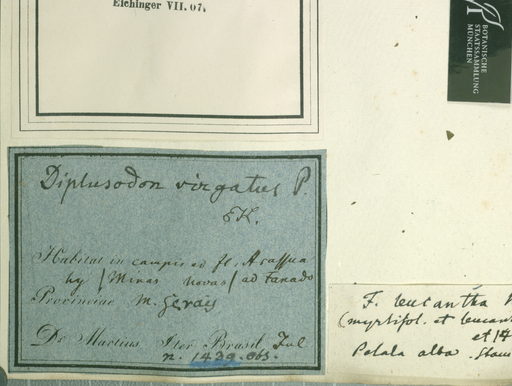 Eichinger VII. 07.
BOTANISCHE
STAATSSAMMLUNG
MÜNCHEN
Diplusodon virgatus P.
Habitat in campis ad fl.
(Minas novas) ad Fanado
Provinciae M. Geraës
Dr. Martius Iter Brasil. Jul
n. 1439.
F. leucantha
(myrtifol. et leucant
et
Petala alba.